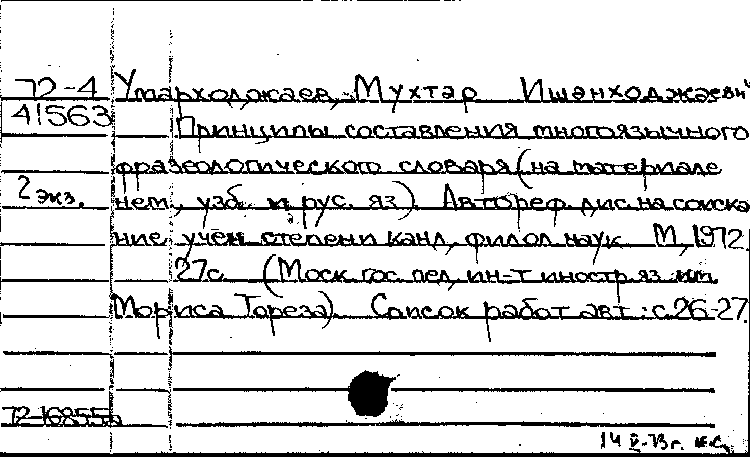 72-4 Умарходжаев, Мухтар Ишанходжаевич
41563 Принципы составления многоязычного
фразеологического словаря (на материале
2 экз. нем., узб. и рус. яз.). Автореф. дис. на соиска
ние учен. степени канд. филол. наук М., 1972.
27 с. (Моск. гос. пед. ин-т иностр. яз. им.
Мориса Тореза). Список работ авт.: с. 26-27.
72-16855
14 V-73 г.